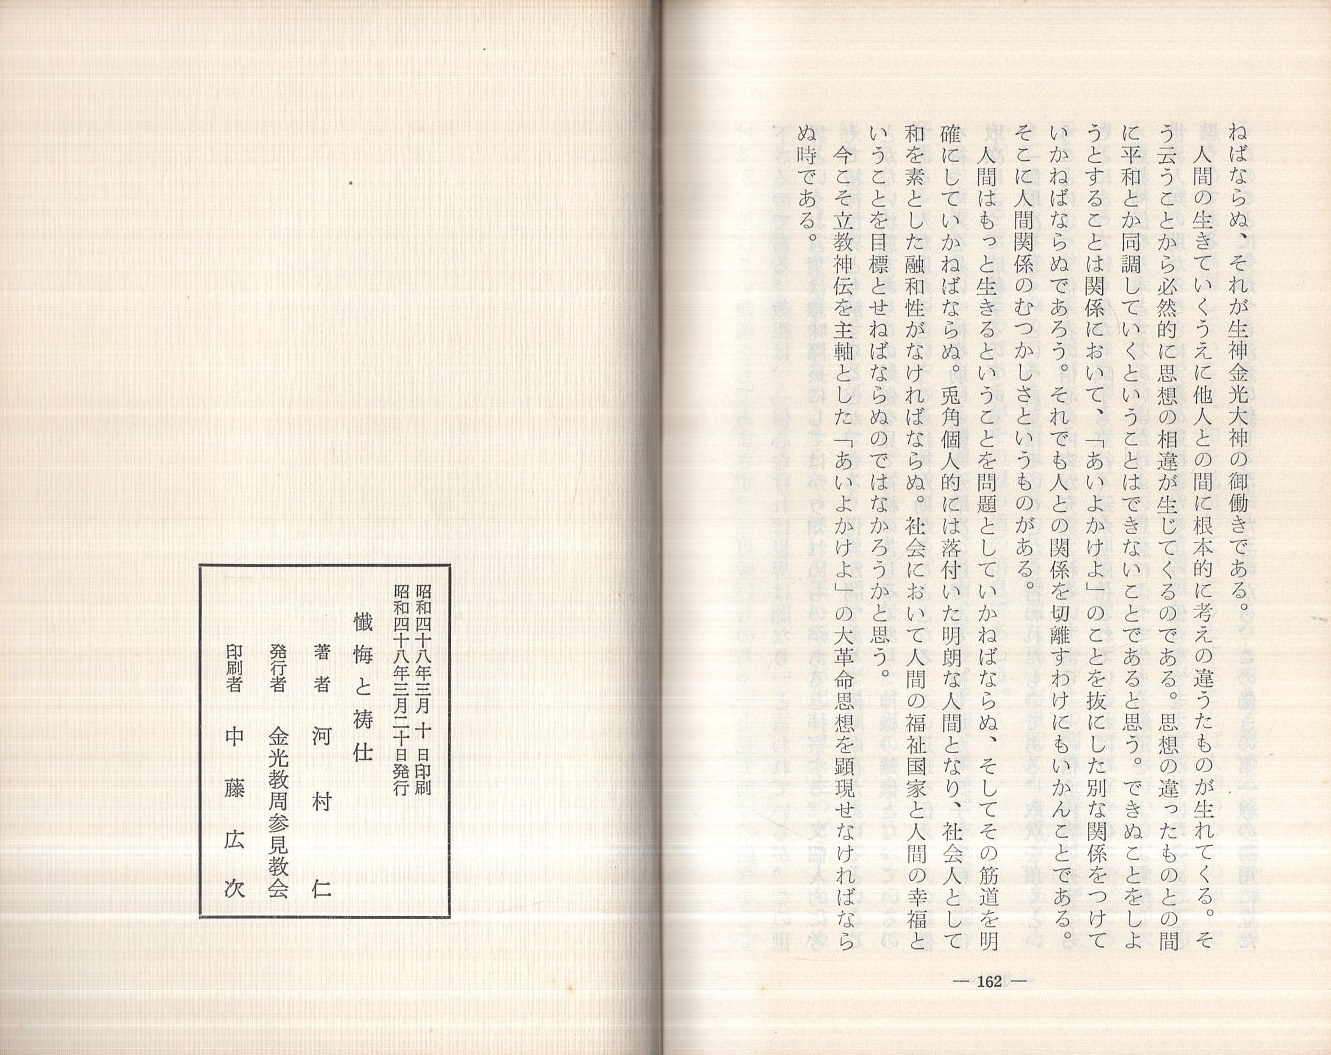 ねばならぬ、それが生神金光大神の御働きである。
人間の生きていくうえに他人との間に根本的に考えの違うたものが生れてくる。そ
う云うことから必然的に思想の相違が生じてくるのである。思想の違ったものとの間
に平和とか同調していくということはできないことであると思う。できぬことをしよ
うとすることは関係において、「あいよかけよ」のことを抜にした別な関係をつけて
いかねばならぬであろう。それでも人との関係を切離すわけにもいかんことである。
そこに人間関係のむつかしさというものがある。
人間はもっと生きるということを問題としていかねばならぬ、そしてその筋道を明
確にしていかねばならぬ。兎角個人的には落付いた明朗な人間となり、社会人として
和を素とした融和性がなければならぬ。社会において人間の福祉国家と人間の幸福と
いうことを目標とせねばならぬのではなかろうかと思う。
今こそ立教神伝を主軸とした「あいよかけよ」の大革命思想を顕現せなければなら
ぬ時である。
— 162 —
昭和四十八年三月 十 日印刷
昭和四十八年三月二十日発行
懺悔と祷仕
著者 河村 仁
発行者 金光教周参見教会
印刷者 中藤広次